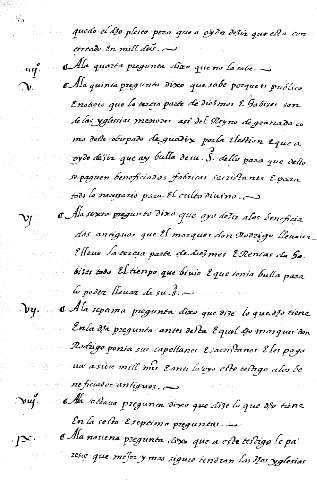 quedo el dho pleito para que a oydo dezir que esta con
certado en mill dºs.
iiijº. A la quarta pregunta dixo que no la sabe.
V. A la quinta pregunta dixo que sabe porque es publico
E notorio que la terçia parte de diezmos E habizes son
de las yglesias menores asi del Reyno de granada co
mo deste obispado de guadix por la Eleçion E que a
oydo dezir que ay bulla de su S. dello para que dello
se paguen beneficiados fabricas sacristanes E para
todo lo neçesario para El culto divino.
VJ A la sexta pregunta dixo que oyo dezir a los beneficia
dos antiguos que El marques don Rodrigo llevava
E lleva la terçia parte de diezmos E Rentas de ha
bizes todo El tiempo que bivio E que tenia bulla para
lo poder llevar de su S.
Vij. A la setima pregunta dixo que dize lo que dho tiene
En la dha pregunta antes desta E quel dho marques don
Rodrigo ponia sus capellanes E sacristanes E los paga
va a siete mill mrs E anti lo oyo este testigo a los be
neficiados antiguos.
Viijº. A la octava pregunta dixo que dize lo que dho tiene
En la sesta E setima preguntas.
jX. A la novena pregunta dixo que a este testigo le pa
resce que mejor y mas siguro tendran las dhas yglesias